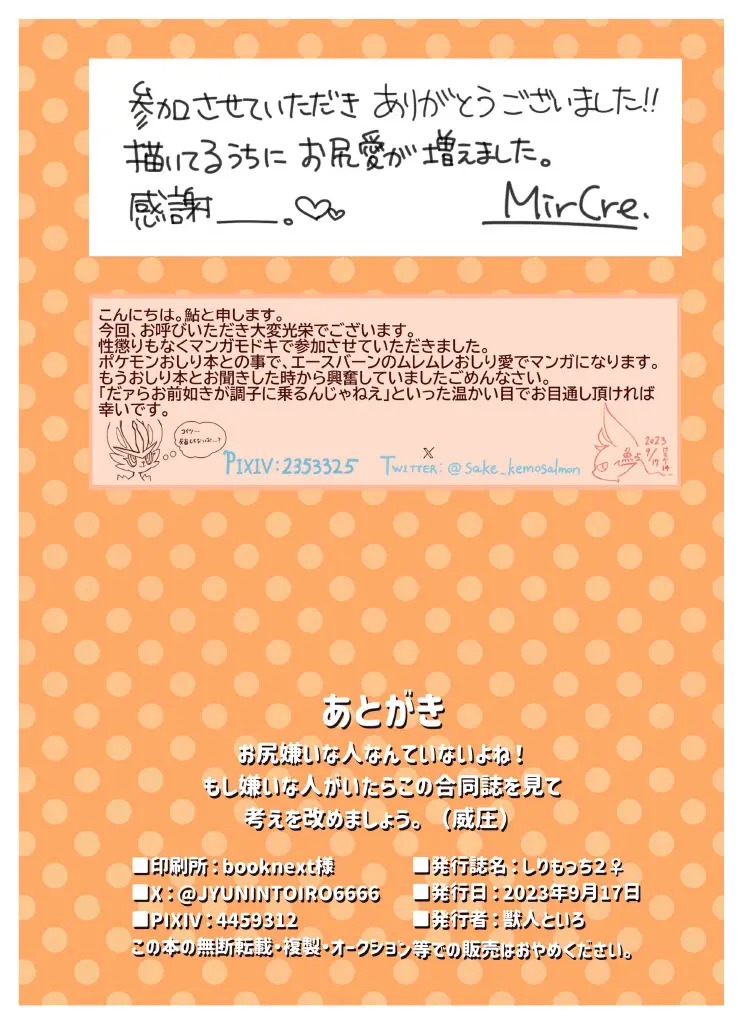 参加させていただき ありがとうございました!!
描いてるうちに お尻愛が増えました。
感謝___。♡♡
MirCre.
こんにちは。鮎と申します。
今回、お呼びいただき大変光栄でございます。
性懲りもなくマンガモドキで参加させていただきました。
ポケモンおしり本との事で、エースバーンのムレムレおしり愛でマンガになります。
もうおしり本とお聞きした時から興奮していましたごめんなさい。
「だァらお前如きが調子に乗るんじゃねえ」といった温かい目でお目通し頂ければ
幸いです。
コイツ…
PIXIV:2353325
X
TWITTER: @sake_kemosalmon
2023
9/17
あとがき
お尻嫌いな人なんていないよね！
もし嫌いな人がいたらこの合同誌を見て
考えを改めましょう。（威圧）
■印刷所：booknext様
■X：@JYUNINTOIRO6666
■PIXIV：4459312
■発行誌名：しりもっち2♀
■発行日：2023年9月17日
■発行者：獣人といろ
この本の無断転載・複製・オークション等での販売はおやめください。